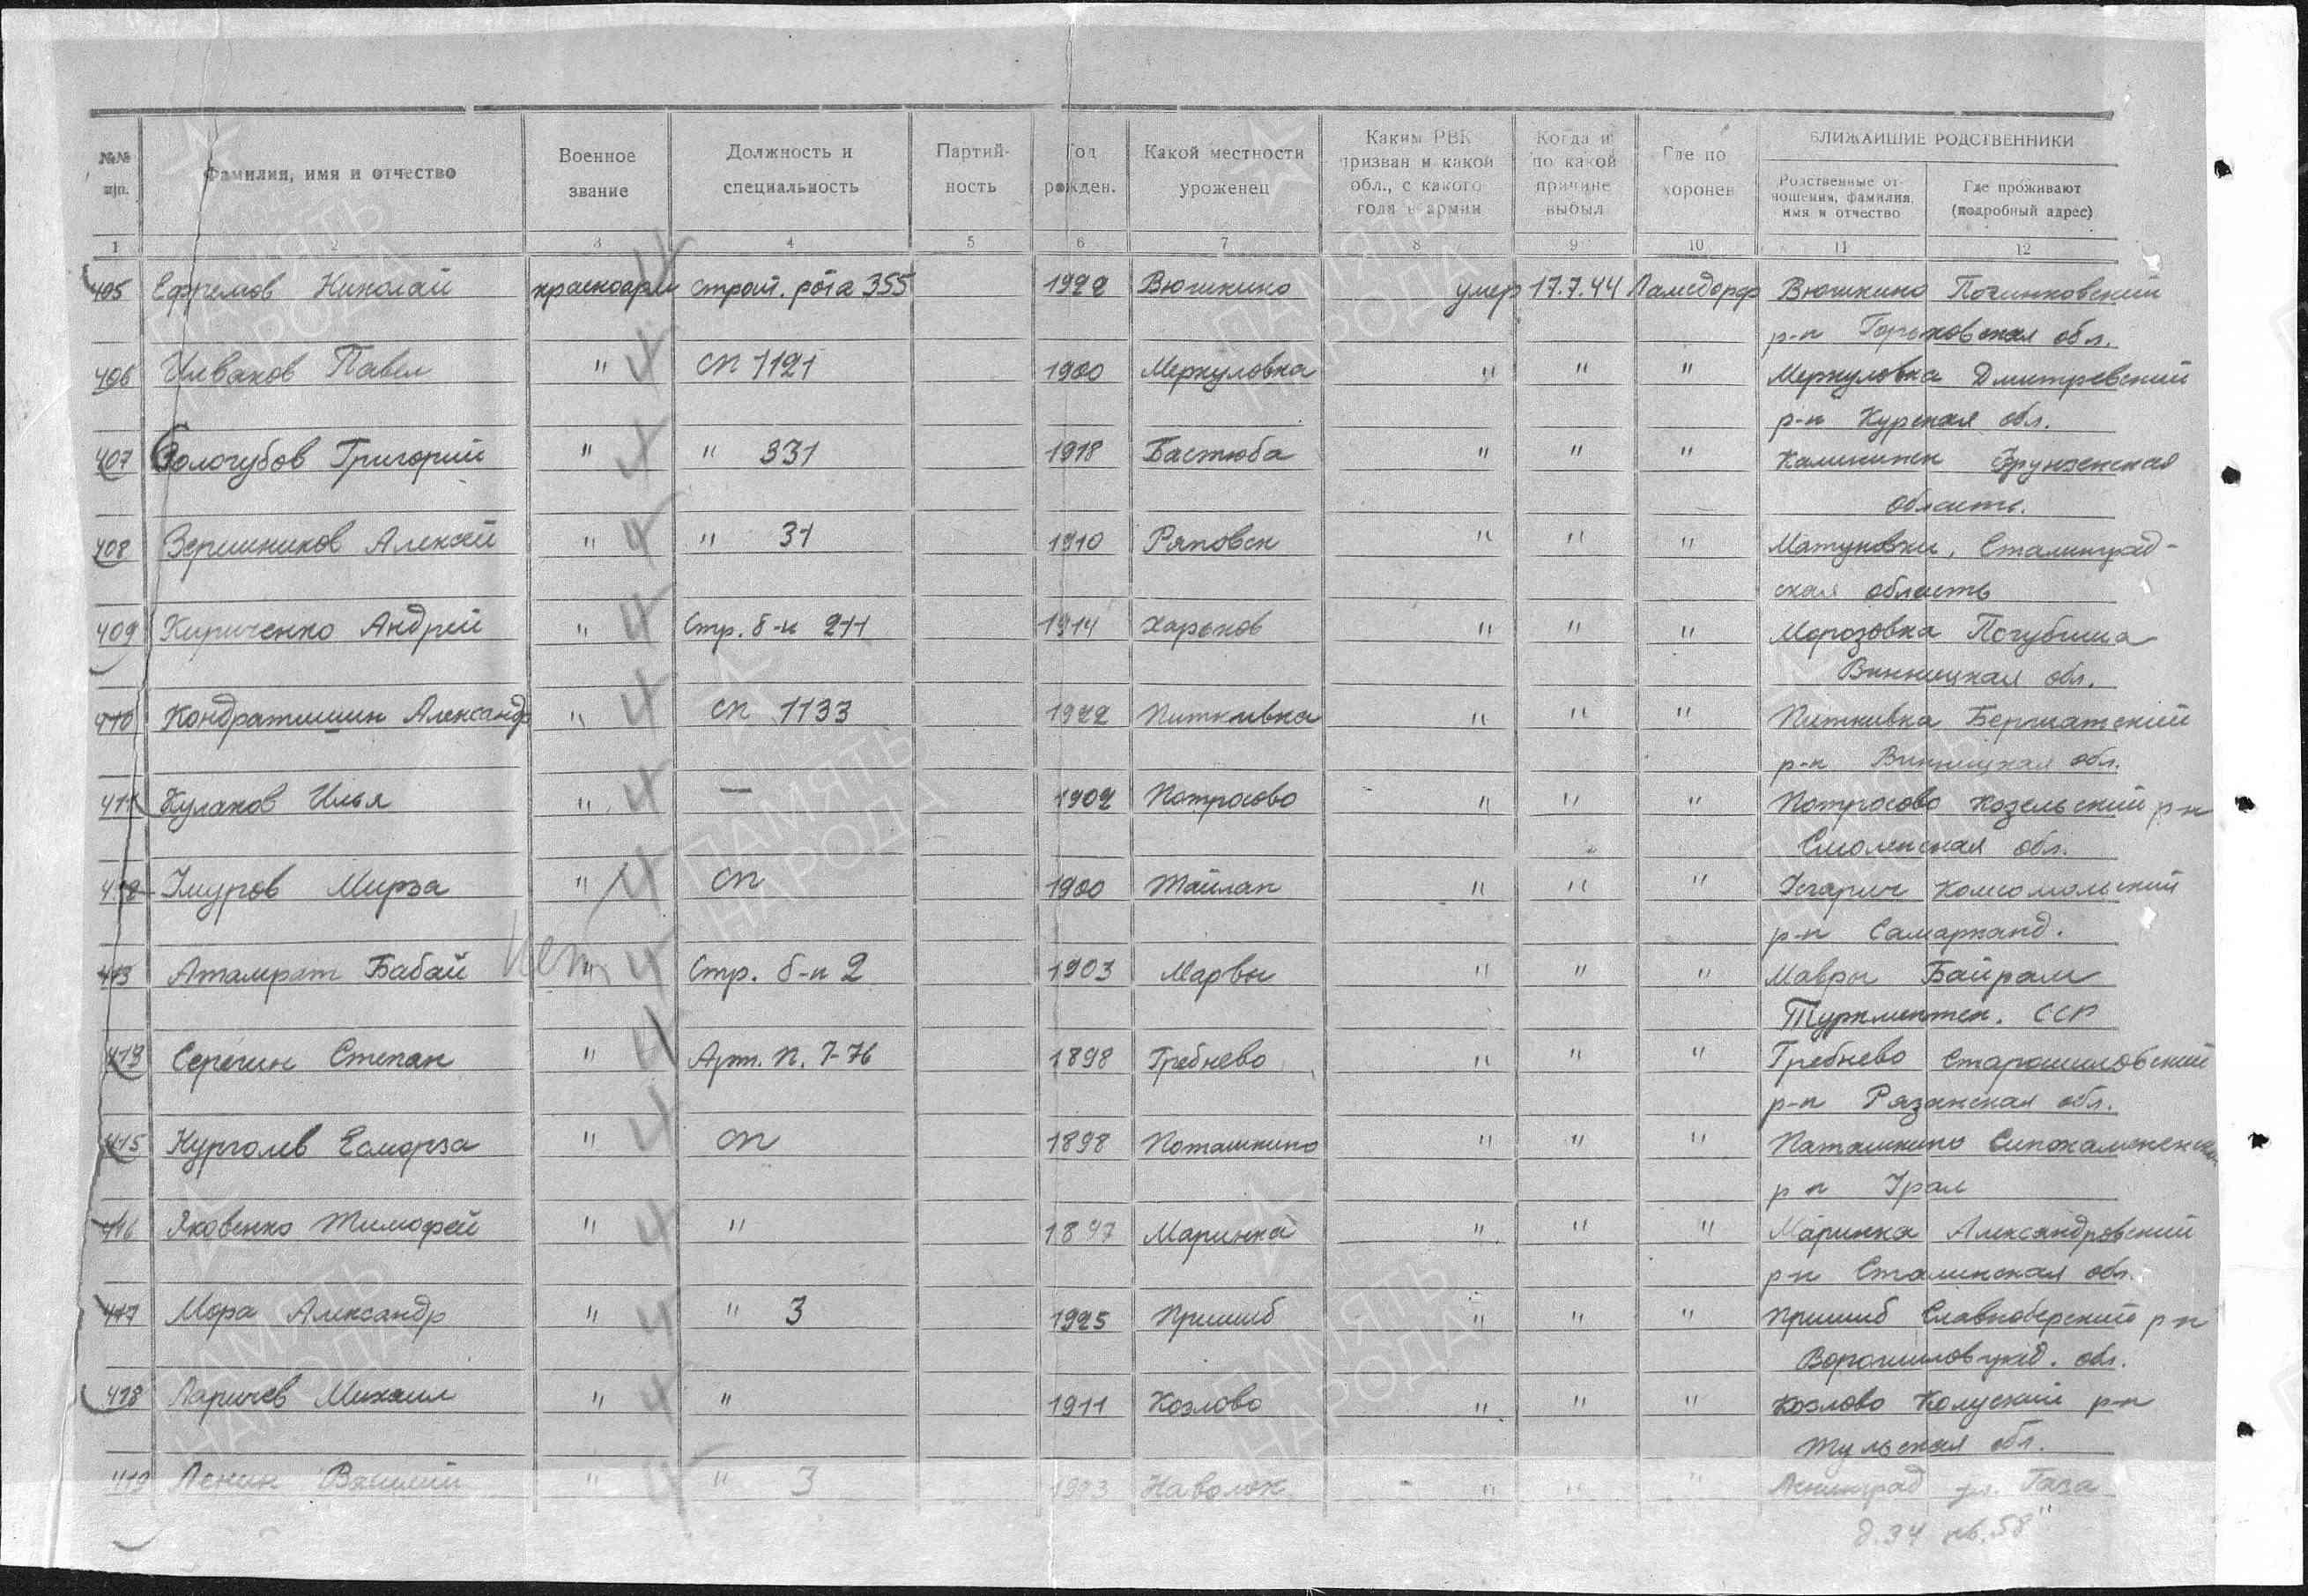 №№ п|п.
Фамилия, имя и отчество
Военное звание
Должность и специальность
Партийность
Год рожден.
Какой местности уроженец
Каким РВК призван и какой обл., с какого года в армии
Когда и по какой причине выбыл
Где похоронен
БЛИЖАЙШИЕ РОДСТВЕННИКИ
Родственные отношения, фамилия, имя и отчество
Где проживают (подробный адрес)
1 2 3 4 5 6 7 8 9 10 11 12
405 Ефремов Николай красноарм строит. рота 355 1922 Вюшкино умер 17.7.44 Ламсдорф Вюшкино Починковский
р-н Горьковская обл.
406 Илваков Павел " сп 1121 1900 Меркуловка " " " Меркуловка Дмитревский
р-н Курская обл.
407 Сологубов Григорий " " 331 1918 Бастюба " " " Калининск Фрунзенская
область.
408 Алексей " " 31 1910 Ряповск " " " Сталинград-
ская область
409 Кириченко Андрей " Стр. б-н 211 1914 Харьков " " " Морозовка Погубища
Винницкая обл.
410 Кондратишин Александр " сп 1133 1922 Питкивка " " " Питкивка Бершатский
р-н Винницкая обл.
411 Кулаков Илья " — 1902 Потросово " " " Потросово Козельский р-н
Смоленская обл.
412 Мирза " сп 1900 Тайлак " " " Комсомольский
р-н Самарканд.
413 Атамрат Бабай нет " Стр. б-н 2 1903 Марвы " " " Мавры Байрам
Туркментск. ССР
Серегин Степан " Арт. п. 7-76 1898 Гребнево " " " Гребнево Старошиловский
р-н Рязанская обл.
415 Нурголев Есморза " сп 1898 Поташкино " " " Паташкино
р н Урал
416 Яковенко Тимофей " " 1897 Маринка " " " Маринка Александровский
р-н Сталинская обл.
417 Мора Александр " " 3 1925 Пришиб " " " Пришиб Славносерский р-н
Ворошиловград. обл.
418 Ларичев Михаил " " 1911 Козлово " " " Козлово р-н
Тульская обл.
419 Ленин Василий " " 3 1903 Наволок " " " Ленинград ул. Газа
д. 34 кв. 58
ПАМЯТЬ НАРОДА